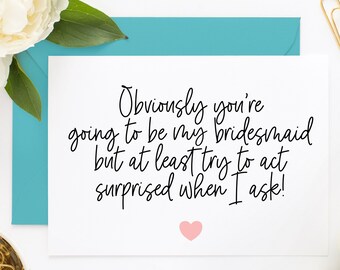 Obviously you're
going to be my bridesmaid
but at least try to act
surprised when I ask!